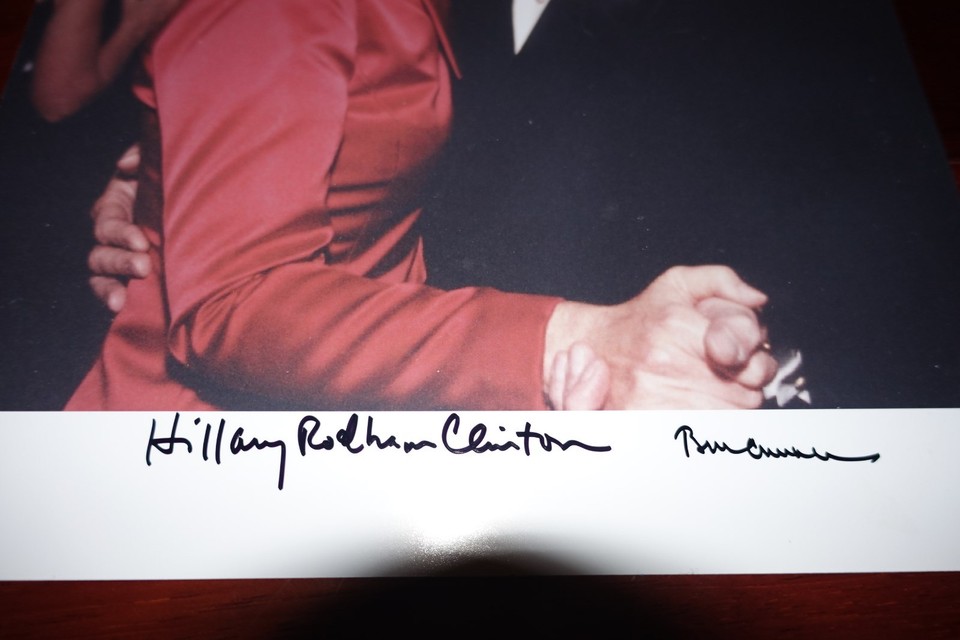 Hillary Rodham Clinton Bill Clinton